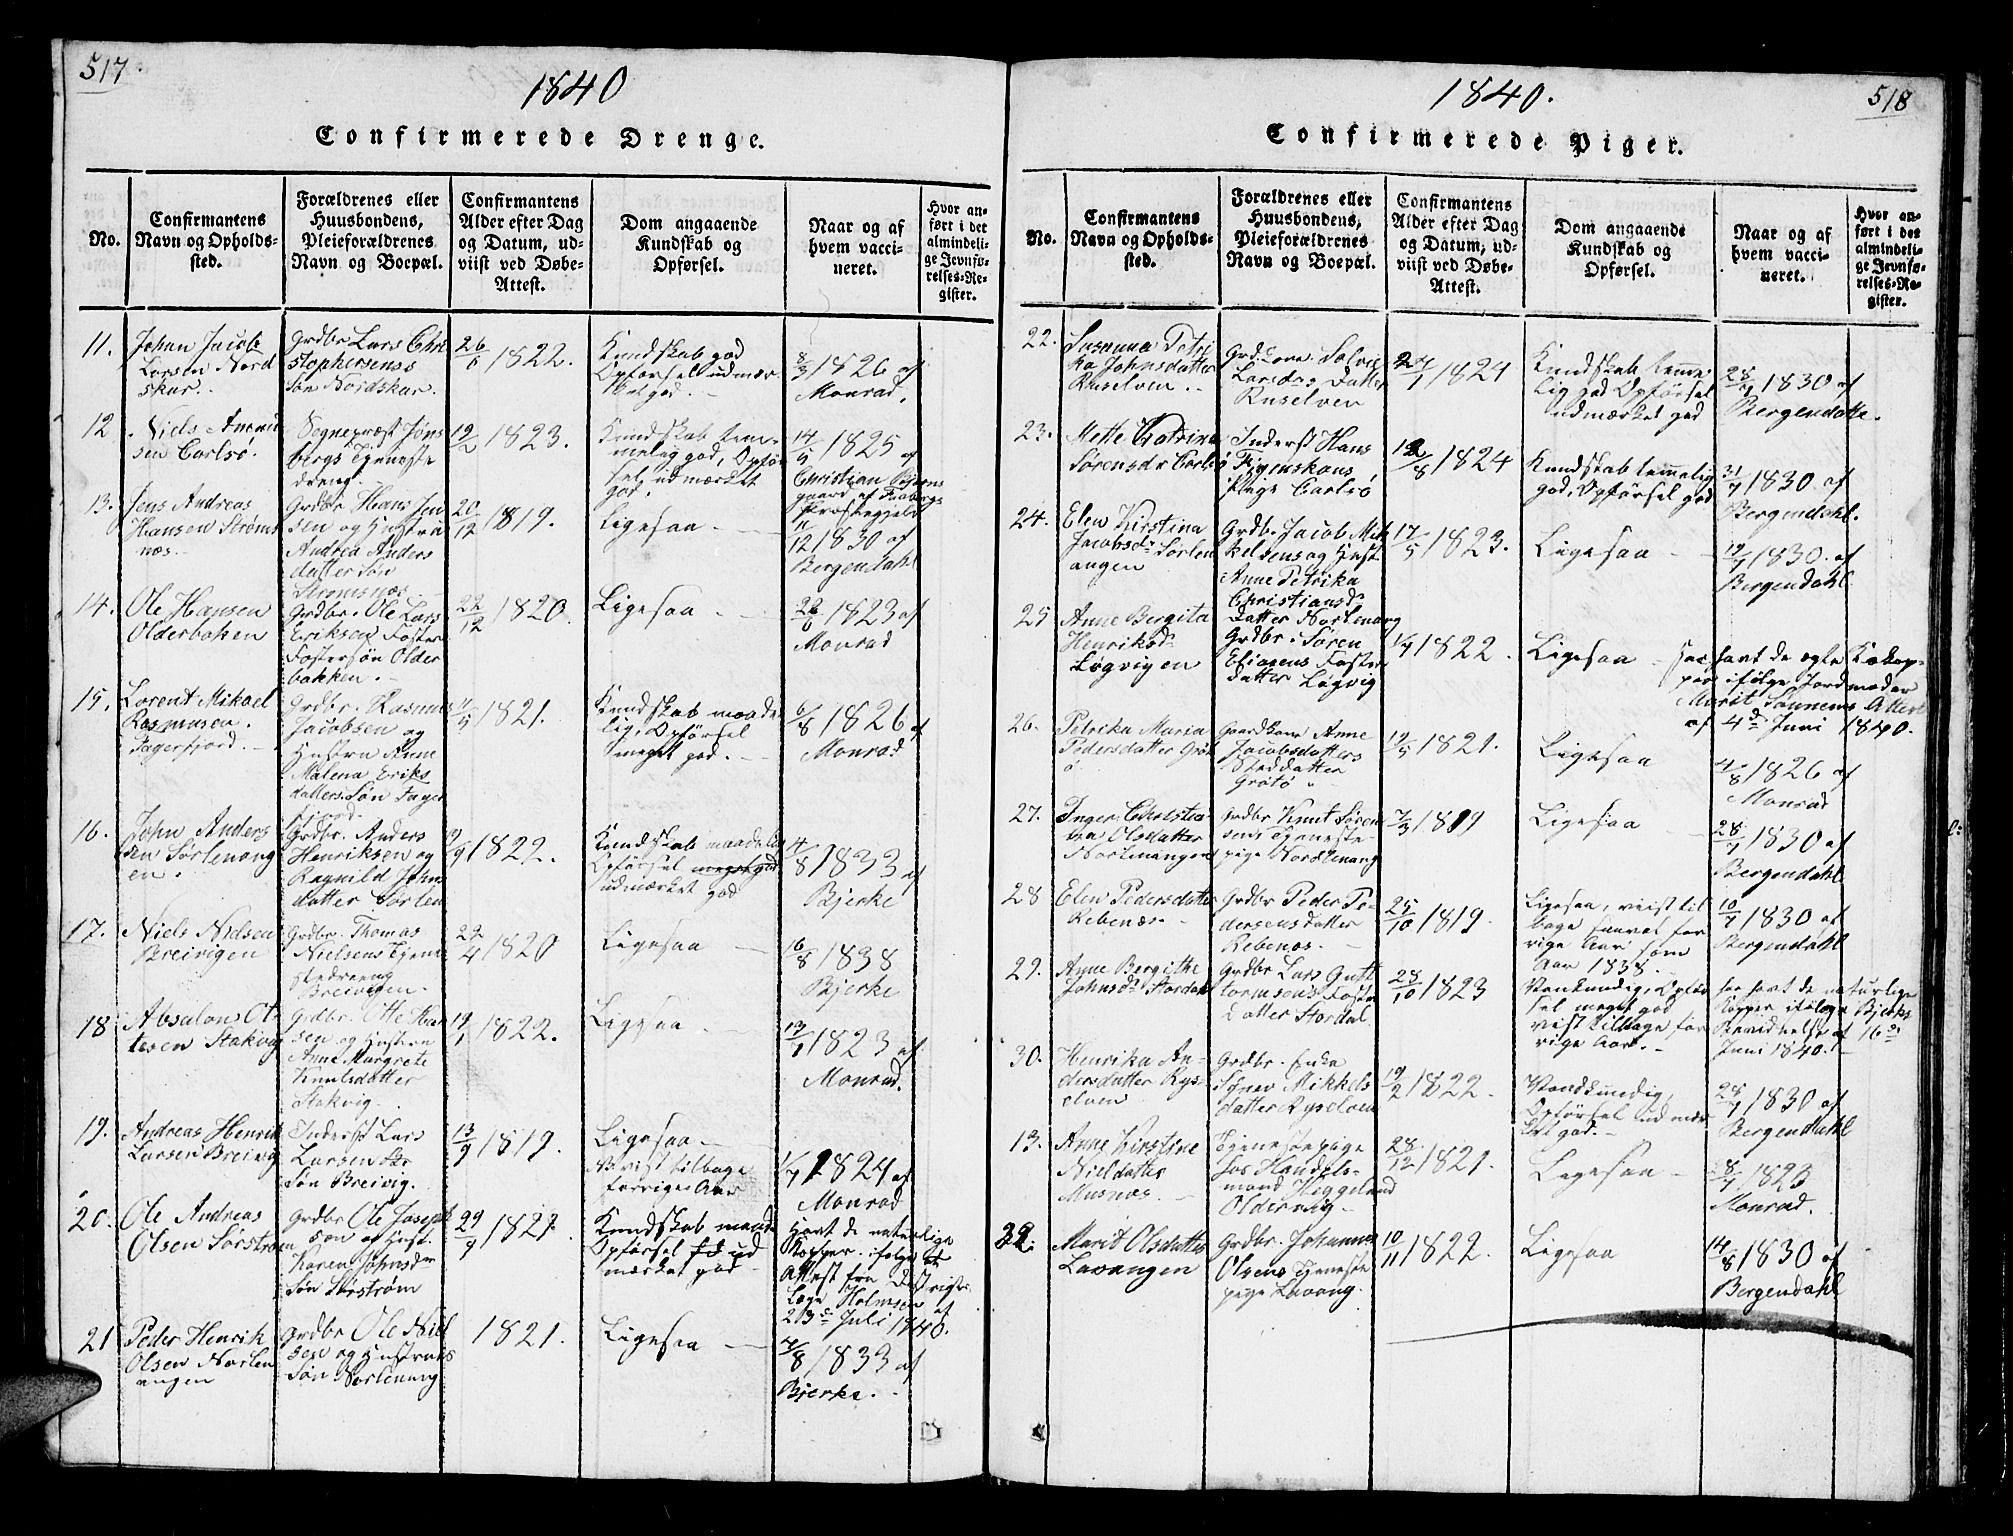 517.
1840
Confirmerede Drenge.
No.
Confirmantens
Navn og Opholds-
sted.
Forældrenes eller
Huusbondens,
Pleieforældrenes
Navn og Boepæl.
Confirmantens
Alder efter Dag
og Datum, ud-
viist ved Døbe-
Attest.
Dom angaaende
Kundskab og
Opførsel.
Naar og af
hvem vacci-
neret.
Hvor an-
ført i det
almindeli-
ge Jevnfø-
relses-Re-
gister.
11.
Johan Jacob
Larsen Nord
skar.
Grdbr Lars Chri
stophersens
Søn Nordskar.
26/6 1822.
Kundskab god
Opførsel udmær
ket god.
8/3 1826 af
Monrad.
12
Niels
sen Carlsø.
Sognepræst Jøns
bergs Tjeneste
dreng.
19/2 1823.
Kundskab tem-
melig god, Opfør
sel udmærket
god.
14/5 1825
Christian
13.
Jens Andreas
Hansen Strøms
næs.
Grdbr. Hans Jen
sen og Hustru
Andrea Anders
datter Søn
Strømsnæs.
20/12 1819.
Ligesaa
11/12 1830 af
Bergendahl
14.
Ole Hansen
Olderbakken
Grdbr. Ole Lars
Eriksens Foster
Fostersøn Older
bakken.
22/12 1820.
Ligesaa
1823 af
Monrad
15.
Lorent Mikael
Rasmusen.
Fagerfjord.
Grdbr. Rasmus
Jacobsen og
Hustru Anne
Malena Eriks
datters Søn Fager
fjord.
11/5 1821.
Kundskab maade
lig, Opførsel
meget god.
6/8 1826 af
Monrad
16.
John Anders
sen Sørlenang
en.
Grdbr. Anders
Henriksen og
Ragnild John
datter Sørlen
1822.
Kundskab maadelig
Opførsel meget god
udmærket god
4/8 1833 af
Bjerke
17.
Niels Nielsen
Breivigen
Grdbr. Thomas
Nielsens Tjene
stedreng
Breivigen.
22/4 1820
Ligesaa
16/8 1838
Bjerke
18
Absalon Ot
tesen Stakvig
Grdbr. Otte Han
sen og Hustru
Anne Margrete
Knutsdatter
Stakvig.
19/1 1822.
Ligesaa
13/7 1823 af
Monrad.
19.
Andreas Henrik
Larsen Breivig
Inderst Lars
Larsens
Søn Breivig.
13/9 1819.
Ligesaa
vist tilbage
forrige Aar
1/7 1824 af
Monrad
20.
Ole Andreas
Olsen Sørstrøm
Grdbr Ole Joseph
sen og Hust.
Karen Johnsdr
Søn Sørstrøm
29/9 1827
Kundskab maade
Opførsel ud
mærket god
Havt de naturlige
Kopper ifølge
Attest fra Distrigts
Læge Holmsen af
23de Juli 1840.
21
Peder Henrik
Olsen Norlen
angen
Grdbr Ole Niel
sen og Hustrues
Søn Norlenang
1821.
Ligesaa
4/8 1833 af
Bjerke.
1840.
518
Confirmerede Piger.
No.
Confirmantens
Navn og Opholds-
sted.
Forældrenes eller
Huusbondens,
Pleieforældrenes
Navn og Boepæl.
Confirmantens
Alder efter Dag
og Datum, ud-
viist ved Døbe-
Attest.
Dom angaaende
Kundskab og
Opførsel.
Naar og af
hvem vacci-
neret.
Hvor an-
ført i det
almindeli-
ge Jevnfø-
relses-Re-
gister.
22.
Susanna Petri
ka Johnsdatter
Ruselven.
Grd.
Larsdas Datter
Ruselven
1824
Kundskab temme
lig god Opførsel
udmærket god
28/7 1830 af
Bergendahl.
23.
Mette Katrina
Sørensdr Carlsø
Inderst Hans
Pige Carlsø
1824
Kundskab temmelig
god, Opførsel god
31/7 1830. af
Bergendahl.
24.
Elen Kirstina
Jacobsdr Sørlen
angen
Grdbr. Jacob Mik
kelsens og Hust
Anne Petrika
Christiansd
datter Norlenang
17/5 1823.
Ligesaa
19/7 1830. af
Bergendahl
25
Anne Bergita
Henriksdr
Løgvigen
Grdbr. Søren
Eliasens Foster
datter Løgvig
1/7 1822.
Ligesaa
har havt de ægte Kokop-
per ifølge Jordmoder
Marit Attest
af 4de Juni 1840.
26.
Petrika Maria
Pedersdatter Grøt
ø
Gaardkone Anne
Jacobsdatters
Steddatter
Grøtø
19/5 1821.
Ligesaa
4/8 1826 af
Monrad
27.
Inger Christia
na Olsdatter
Norlenangen
Grdbr Knut Søren
sens Tjeneste
pige Nordlenang
7/3 1819
Ligesaa
28/7 1830 af
Bergendahl.
28
Elen Pedersdatter
Rebenæs
Grdbr Peder Pe-
dersens datter
Rebenæs.
25/10 1819.
Ligesaa, veist til
bage saavel for
rige Aar som
Aar 1838.
10/7 1830 af
Bergendahl
29.
Anne Bergithe
Johnsdr Stordal
Grdbr Lars Gutt
ormsens Foster
datter Stordal
28/10 1823
Vankundig, Opfør
sel meget god
vist tilbage for
rige Aar.
har havt de naturlige
Kopper ifølge Bjerkes
Bevidnelse af 16de
Juni 1840.
30.
Henrika An
dersdatter Rys-
elven
Grdbr. Enke
Mikkels
datter Ryselven
19/2 1822.
Vandkundig,
Opførsel udmær
ket god.
1830 af
Bergendahl
13.
Anne Kirstine
Nielsdatter
Musnæs.
Tjenestepige
hos Handels-
mand Figgeland
Oldervig.
28/12 1821.
Ligesaa
8/7 1823
Monrad.
32.
Marit Olsdatter
Lavangen
Grdbr. Johannes
Olsens Tjeneste
pige Lavang.
10/11 1822.
Ligesaa
14/8 1830 af
Bergendahl